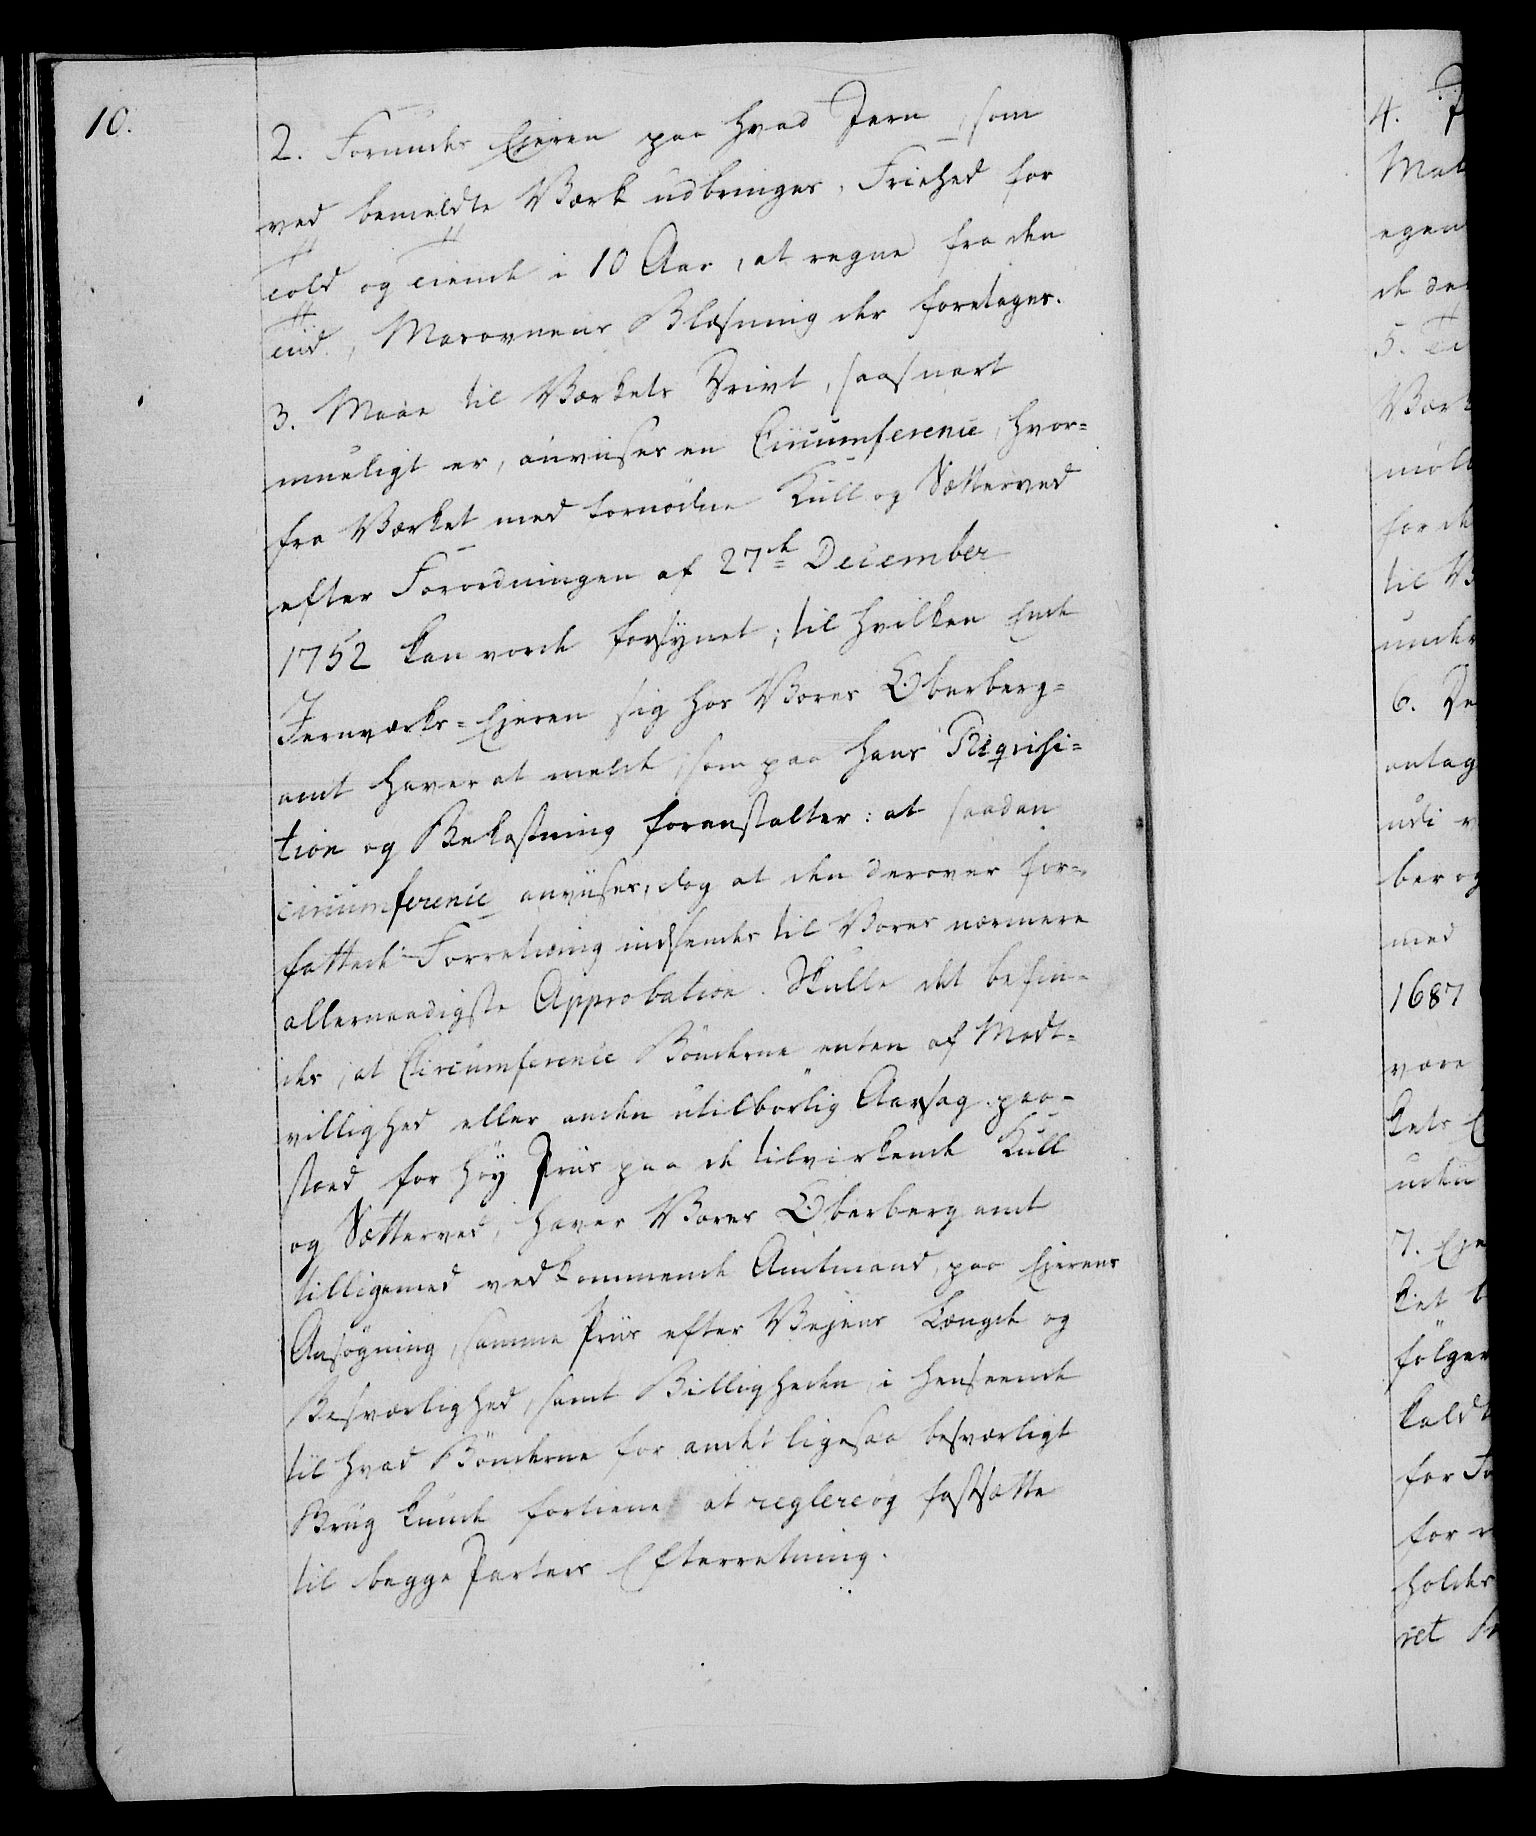 10.
2. Forundes Ejeren paa hvad Jern, som
ved bemeldte Værk udbringes, Friehed for
Told og Tiende i 10 Aar, at regne fra den
Tiid, Masovnens Blæsning der foretages.
3. Maae til Værkets Drivt, saasnart
mueligt er, anviises en Circumference, hvor-
fra Værket med fornødne Kull og Sætterved
efter Forordningen af 27de December
1752 kan vorde forsynet; til hvilken Ende
Jernværks-Ejeren sig hos Vores Oberberg-
amt haver at melde, som paa hans Reqvisi-
tion og Bekostning foranstalter: at saadan
circumference anviises, dog at den derover for-
fattede Forretning indsendes til Vores nærmere
allernaadigste Approbation. Skulle det befin-
des, at Circumference Bönderne enten af Modt-
villighed eller anden utilbörlig Aarsag paa-
stod for høy Priis paa de tilvirkende Kull
og Sætterved, haver Vores Oberbergamt
tilligemed vedkommende Amtmand, paa Ejerens
Ansøgning, samme Priis efter Vejens Længde og
Besværlighed, samt Billigheden, i henseende
til hvad Bönderne for andet ligesaa besværligt
Brug kunde fortiene at reglere og fastsætte
til begge Parters Efterretning.
4.
egen
5.
Værk
for de
til
under
6.
antag
udi
ber og
med
1687
være
kets
uden
7. Eje
ket
følger
kaldt
for
for
holdes
ret